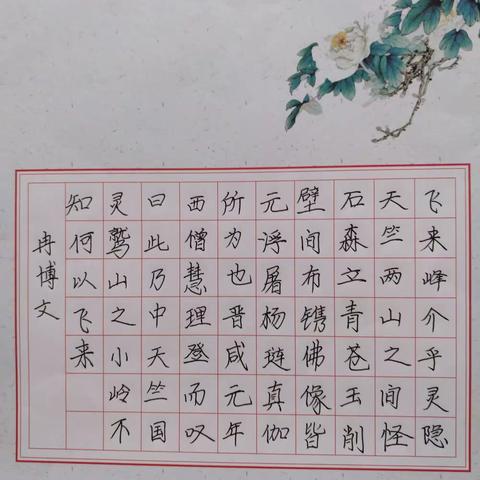 飞来峰介乎灵隐
天竺两山之间怪
石森立青苍玉削
壁间布镌佛像皆
元浮屠杨琏真伽
所为也晋咸元年
西僧慧理登而叹
曰此乃中天竺国
灵鹫山之小岭不
知何以飞来
冉博文